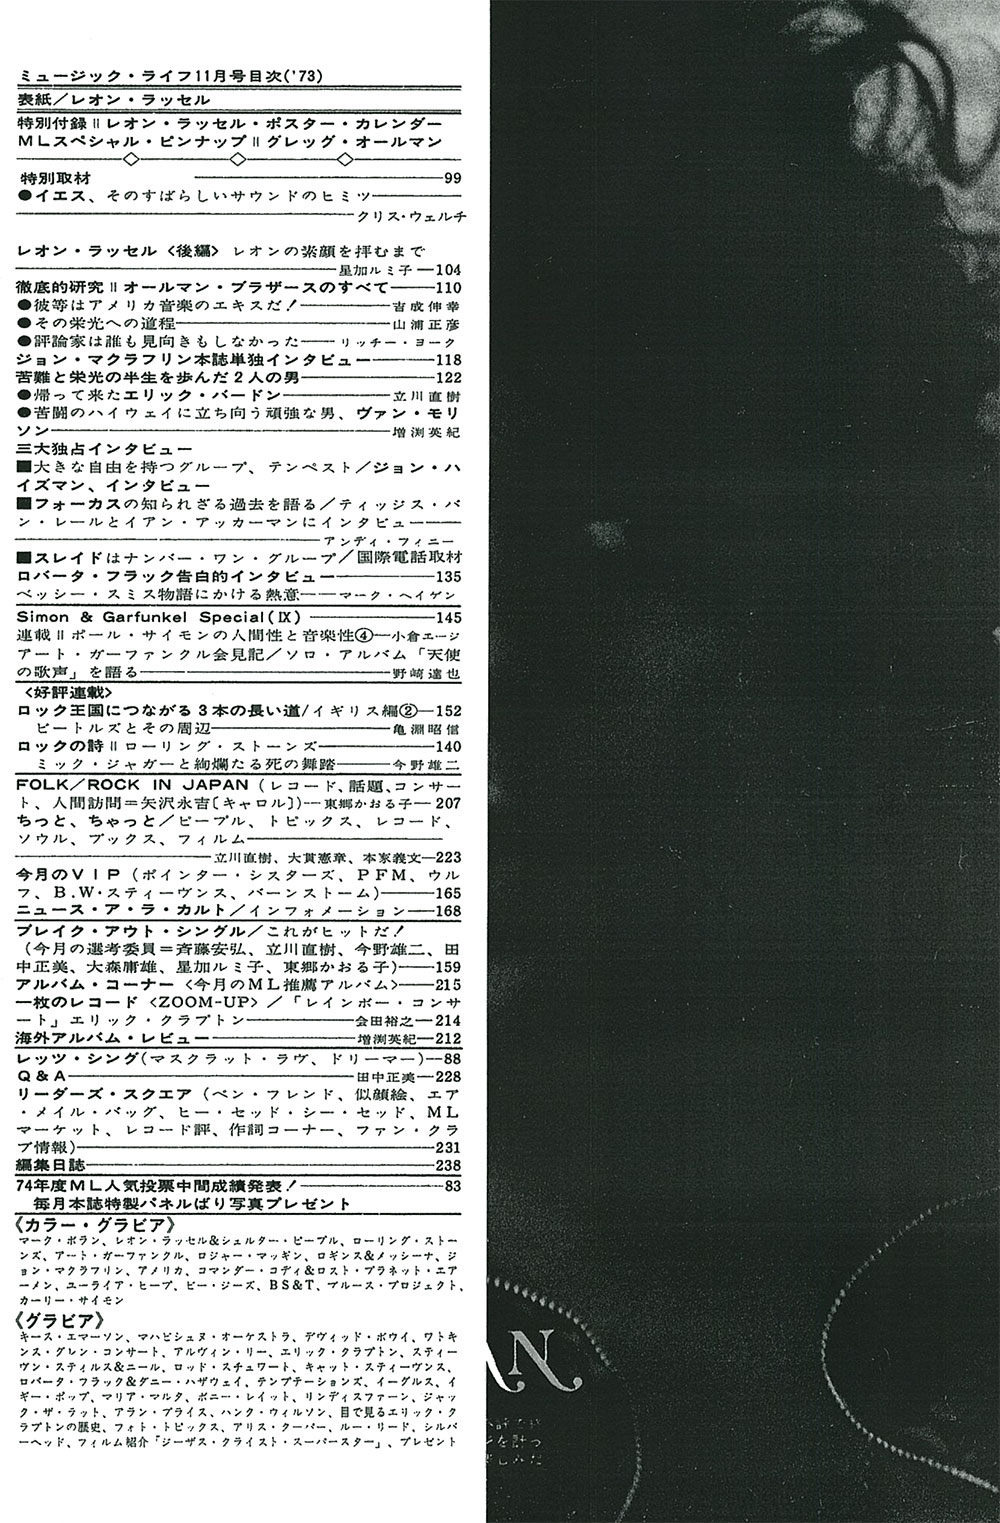 ミュージック・ライフ11月号目次('73)
表紙/レオン・ラッセル
特別付録॥レオン・ラッセル・ポスター・カレンダー
MLスペシャル・ピンナップ॥グレッグ・オールマン
特別取材――99
●イエス、そのすばらしいサウンドのヒミツ――
――クリス・ウェルチ
レオン・ラッセル〈後編〉レオンの素顔を拝むまで
――星加ルミ子―104
徹底的研究॥オールマン・ブラザースのすべて――110
●彼等はアメリカ音楽のエキスだ!――吉成伸幸
●その栄光への道程――山浦正彦
●評論家は誰も見向きもしなかった――リッチー・ヨーク
ジョン・マクラフリン本誌単独インタビュー――118
苦難と栄光の半生を歩んだ2人の男――122
●帰って来たエリック・バードン――立川直樹
●苦闘のハイウェイに立ち向う頑強な男、ヴァン・モリ
ソン――増渕英紀
三大独占インタビュー
■大きな自由を持つグループ、テンペスト/ジョン・ハ
イズマン、インタビュー
■フォーカスの知られざる過去を語る/ティッジス・バ
ン・レールとイアン・アッカーマンにインタビュー――
――アンディ・フィニー
■スレイドはナンバー・ワン・グループ/国際電話取材
ロバータ・フラック告白的インタビュー――135
ベッシー・スミス物語にかける熱意――マーク・ヘイゲン
Simon & Garfunkel Special(Ⅸ)――145
連載॥ポール・サイモンの人間性と音楽性④―小倉エージ
アート・ガーファンクル会見記/ソロ・アルバム「天使
の歌声」を語る――野崎達也
〈好評連載〉
ロック王国につながる3本の長い道/イギリス編②―152
ビートルズとその周辺――亀淵昭信
ロックの詩॥ローリング・ストーンズ――140
ミック・ジャガーと絢爛たる死の舞踏――今野雄二
FOLK/ROCK IN JAPAN(レコード、話題、コンサー
ト、人間訪問=矢沢永吉〔キャロル〕)―東郷かおる子―207
ちっと、ちゃっと/ピープル、トピックス、レコード、
ソウル、ブックス、フィルム――
――立川直樹、大貫憲章、本家義文―223
今月のVIP(ポインター・シスターズ、PFM、ウル
フ、B.W・スティーヴンス、バーンストーム)――165
ニュース・ア・ラ・カルト/インフォメーション――168
ブレイク・アウト・シングル/これがヒットだ!
(今月の選考委員=斉藤安弘、立川直樹、今野雄二、田
中正美、大森庸雄、星加ルミ子、東郷かおる子)――159
アルバム・コーナー〈今月のML推薦アルバム〉――215
一枚のレコード〈ZOOM-UP〉/「レインボー・コンサ
ート」エリック・クラプトン――会田裕之―214
海外アルバム・レビュー――増渕英紀―212
レッツ・シング(マスクラット・ラヴ、ドリーマー)―88
Q&A――田中正美―228
リーダーズ・スクエア(ペン・フレンド、似顔絵、エア
・メイル・バッグ、ヒー・セッド・シー・セッド、ML
マーケット、レコード評、作詞コーナー、ファン・クラ
ブ情報)――231
編集日誌――238
74年度ML人気投票中間成績発表!――83
毎月本誌特製パネルばり写真プレゼント
《カラー・グラビア》
マーク・ボラン、レオン・ラッセル&シェルター・ピープル、ローリング・ストー
ンズ、アート・ガーファンクル、ロジャー・マッギン、ロギンス&メッシーナ、ジ
ョン・マクラフリン、アメリカ、コマンダー・コディ&ロスト・プラネット・エア
ーメン、ユーライア・ヒープ、ビー・ジーズ、BS&T、ブルース・プロジェクト、
カーリー・サイモン
《グラビア》
キース・エマーソン、マハビシュヌ・オーケストラ、デヴィッド・ボウイ、ワトキ
ンス・グレン・コンサート、アルヴィン・リー、エリック・クラプトン、スティー
ヴン・スティルス&ニール、ロッド・スチュワート、キャット・スティーヴンス、
ロバータ・フラック&ダニー・ハザウェイ、テンプテーションズ、イーグルス、イ
ギー・ポップ、マリア・マルタ、ボニー・レイット、リンディスファーン、ジャッ
ク・ザ・ラット、アラン・プライス、ハンク・ウィルソン、目で見るエリック・ク
ラプトンの歴史、フォト・トピックス、アリス・クーパー、ルー・リード、シルバ
ーヘッド、フィルム紹介「ジーザス・クライスト・スーパースター」、プレゼント
AN